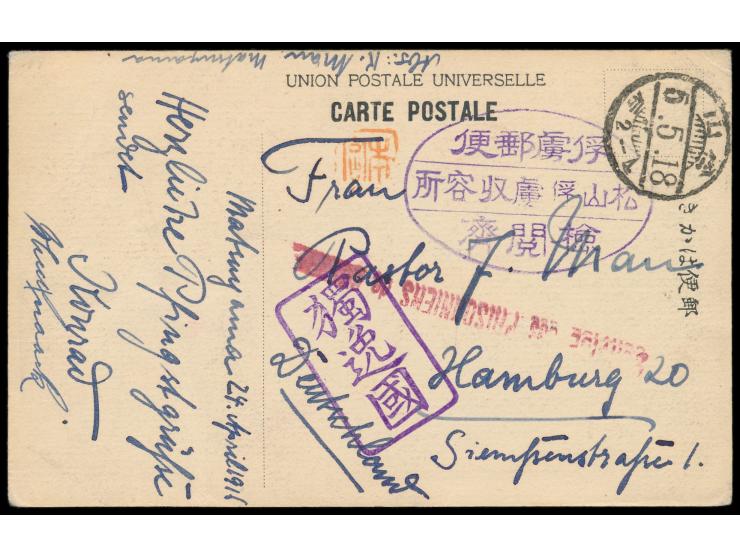 Abs: K. Mau
Matsuyama
UNION POSTALE UNIVERSELLE
CARTE POSTALE
俘虜郵便
松山俘虜収容所
検閲済
松山
5.5.18
きかは便郵
Service des Prisonniers
獨逸國
Frau
Pastor J. Mau
Hamburg 20
Siemssenstraße 1.
Deutschland
Matsuyama 24. April 1915
Herzliche Pfingstgrüße
sendet
Konrad